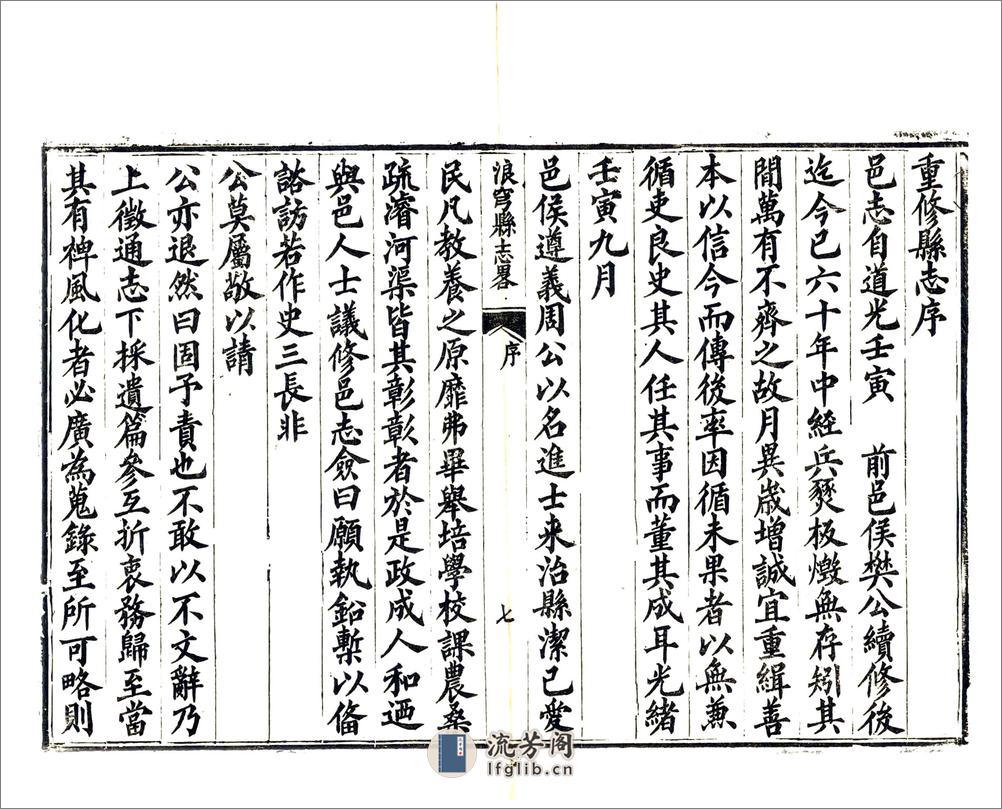 重修縣志序
邑志自道光壬寅　前邑侯樊公續修後
迄今已六十年中經兵燹板燬無存矧其
間萬有不齊之故月異歲增誠宜重緝善
本以信今而傳後率因循未果者以無兼
循吏良史其人任其事而董其成耳光緒
壬寅九月
邑侯遵義周公以名進士来治縣潔己愛
浪穹縣志畧
序
七
民凡教養之原靡弗畢舉培學校課農桑
疏濬河渠皆其彰彰者於是政成人和迺
與邑人士議修邑志僉曰願執鉛槧以俻
諮訪若作史三長非
公莫屬敬以請
公亦退然曰固予責也不敢以不文辭乃
上徵通志下採遺篇參互折衷務歸至當
其有裨風化者必廣為蒐錄至所可略則
流芳阁
lfglib.cn